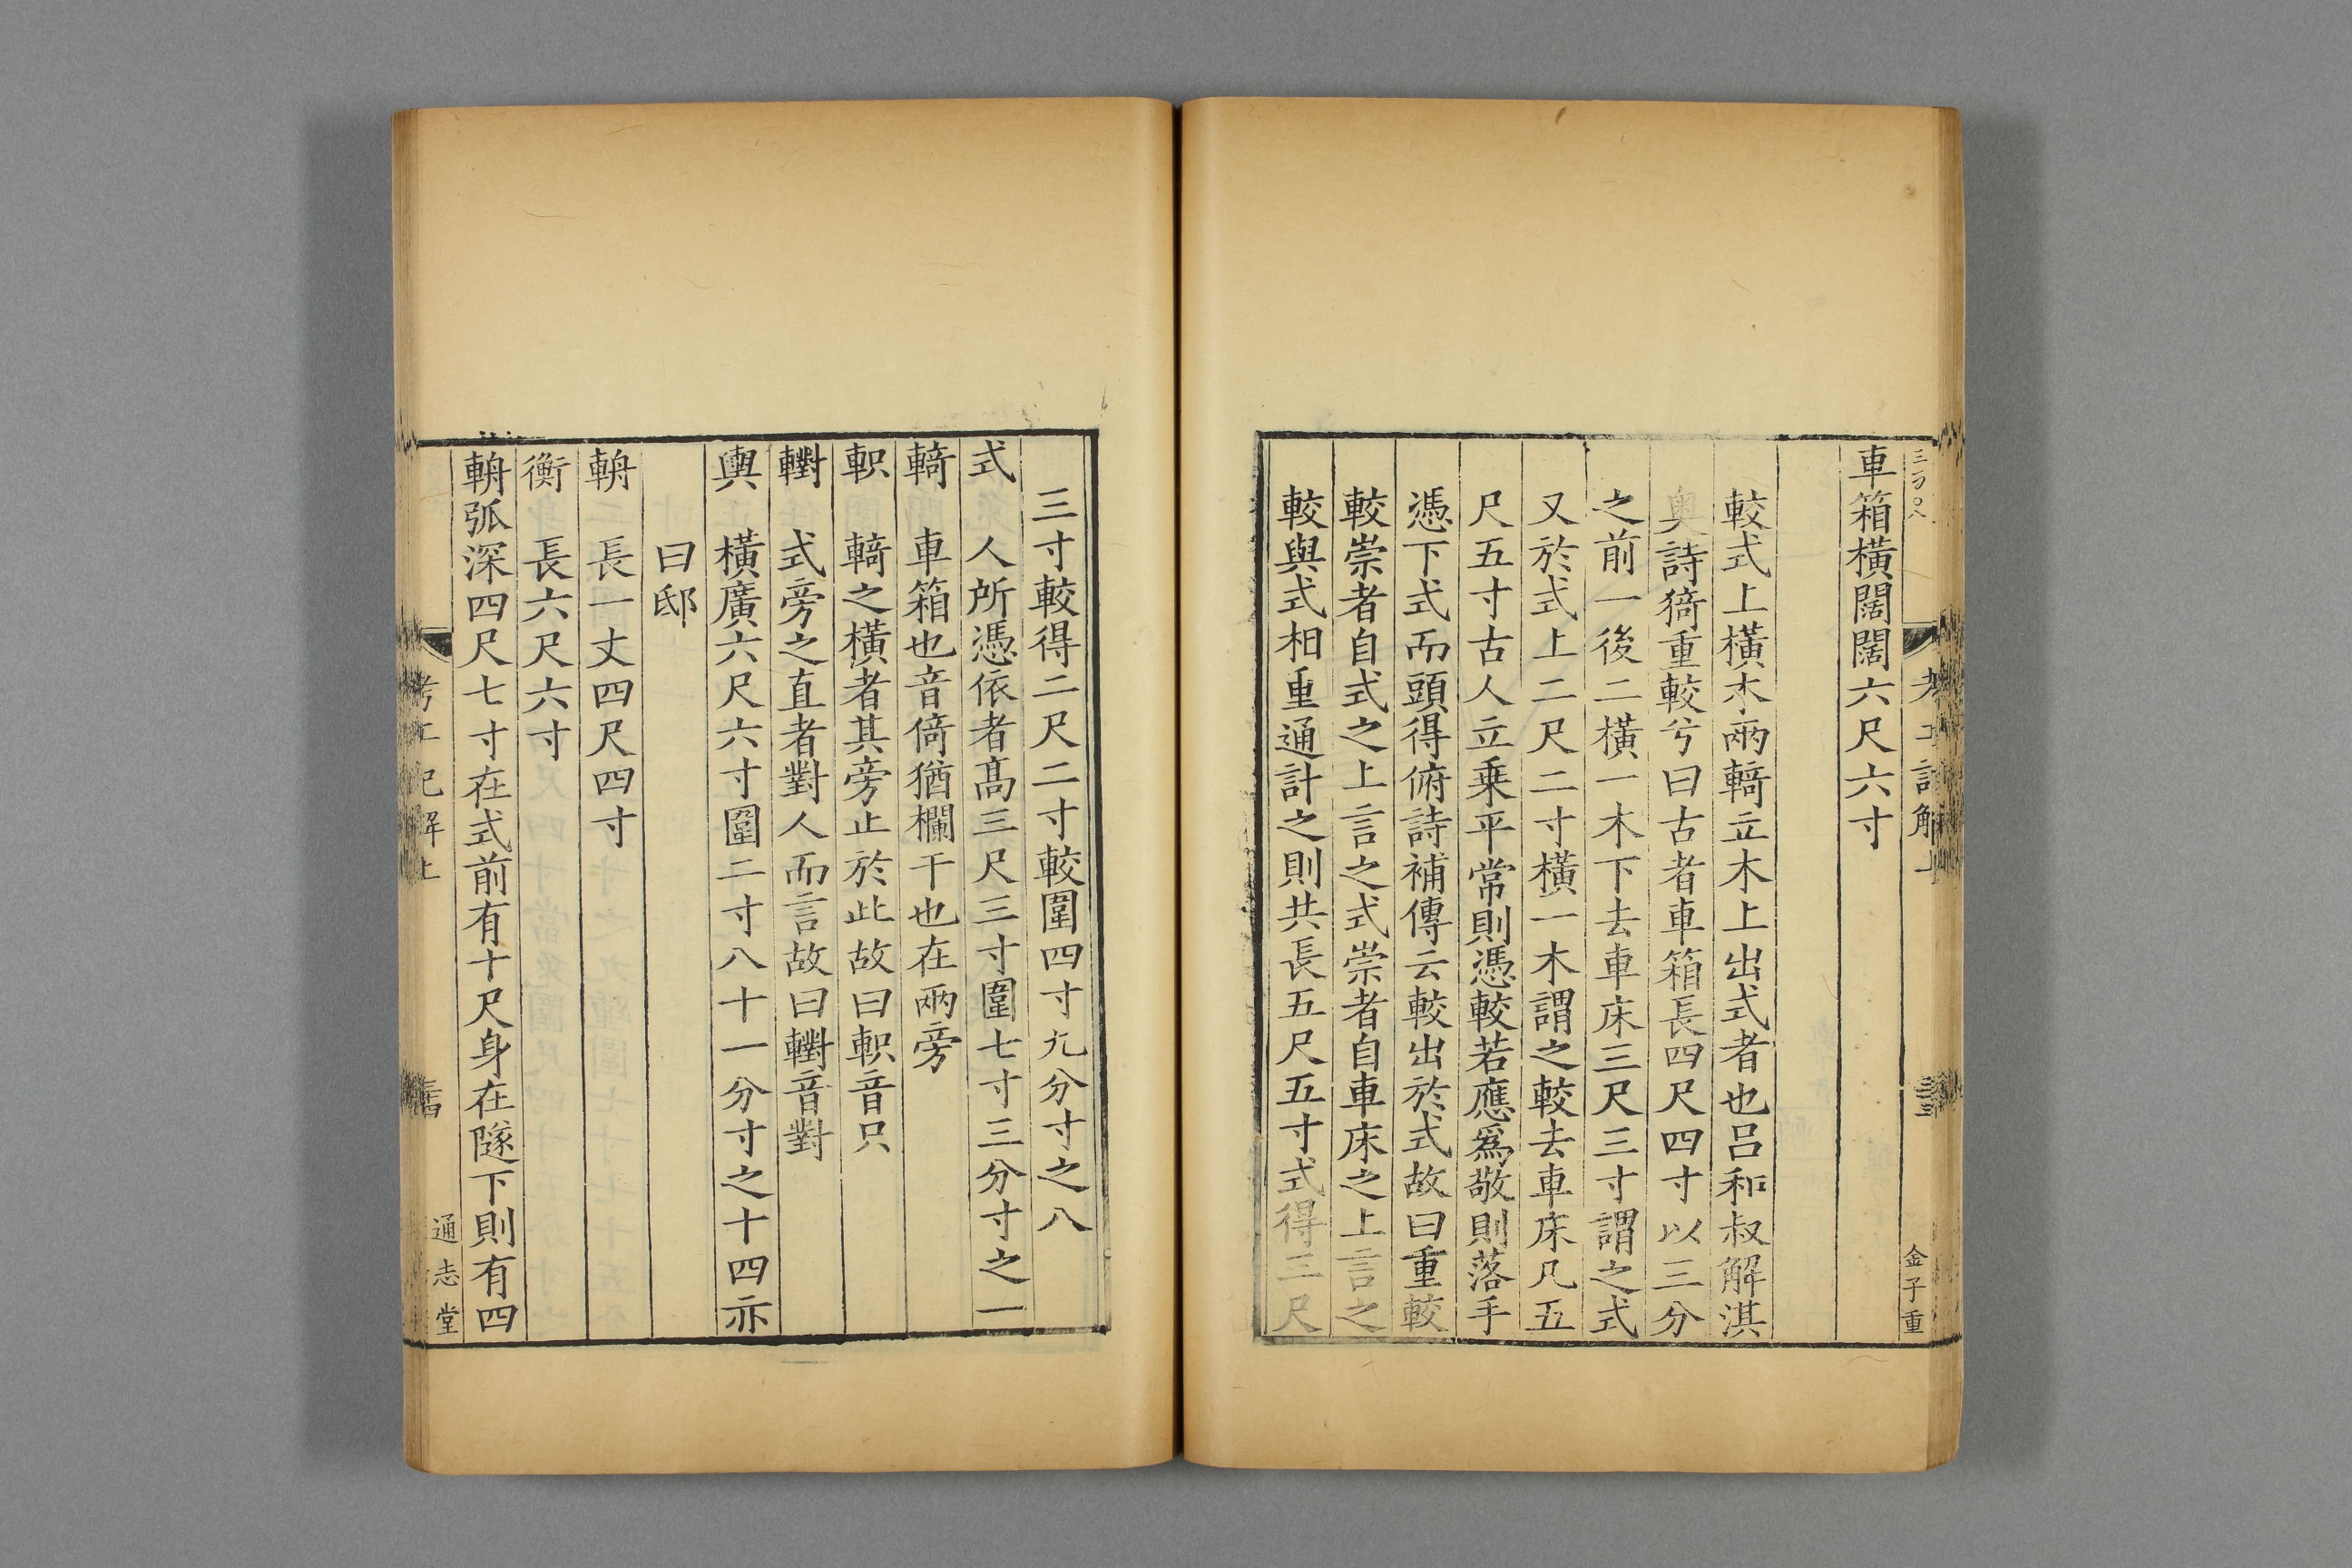 車箱橫闊闊六尺六寸
較式上橫木兩輢立木上出式者也呂和叔解淇
奧詩猗重較兮曰古者車箱長四尺四寸以三分
之前一後二橫一木下去車床三尺三寸謂之式
又於式上二尺二寸橫一木謂之較去車床凡五
尺五寸古人立乗平常則憑較若應爲敬則落手
憑下式而頭得俯詩補傳云較出於式故曰重較
較崇者自式之上言之式崇者自車床之上言之
較與式相重通計之則共長五尺五寸式得三尺
三寸較得二尺二寸較圍四寸九分寸之八
式 人所憑依者髙三尺三寸圍七寸三分寸之一
輢 車箱也音倚猶欄干也在兩旁
軹 輢之橫者其旁止於此故曰軹音只
轛 式旁之直者對人而言故曰轛音對
輿 橫廣六尺六寸圍二寸八十一分寸之十四亦
曰邸
輈 長一丈四尺四寸
衡 長六尺六寸
輈弧深四尺七寸在式前有十尺身在隧下則有四
金子重
考工記解上
通志堂